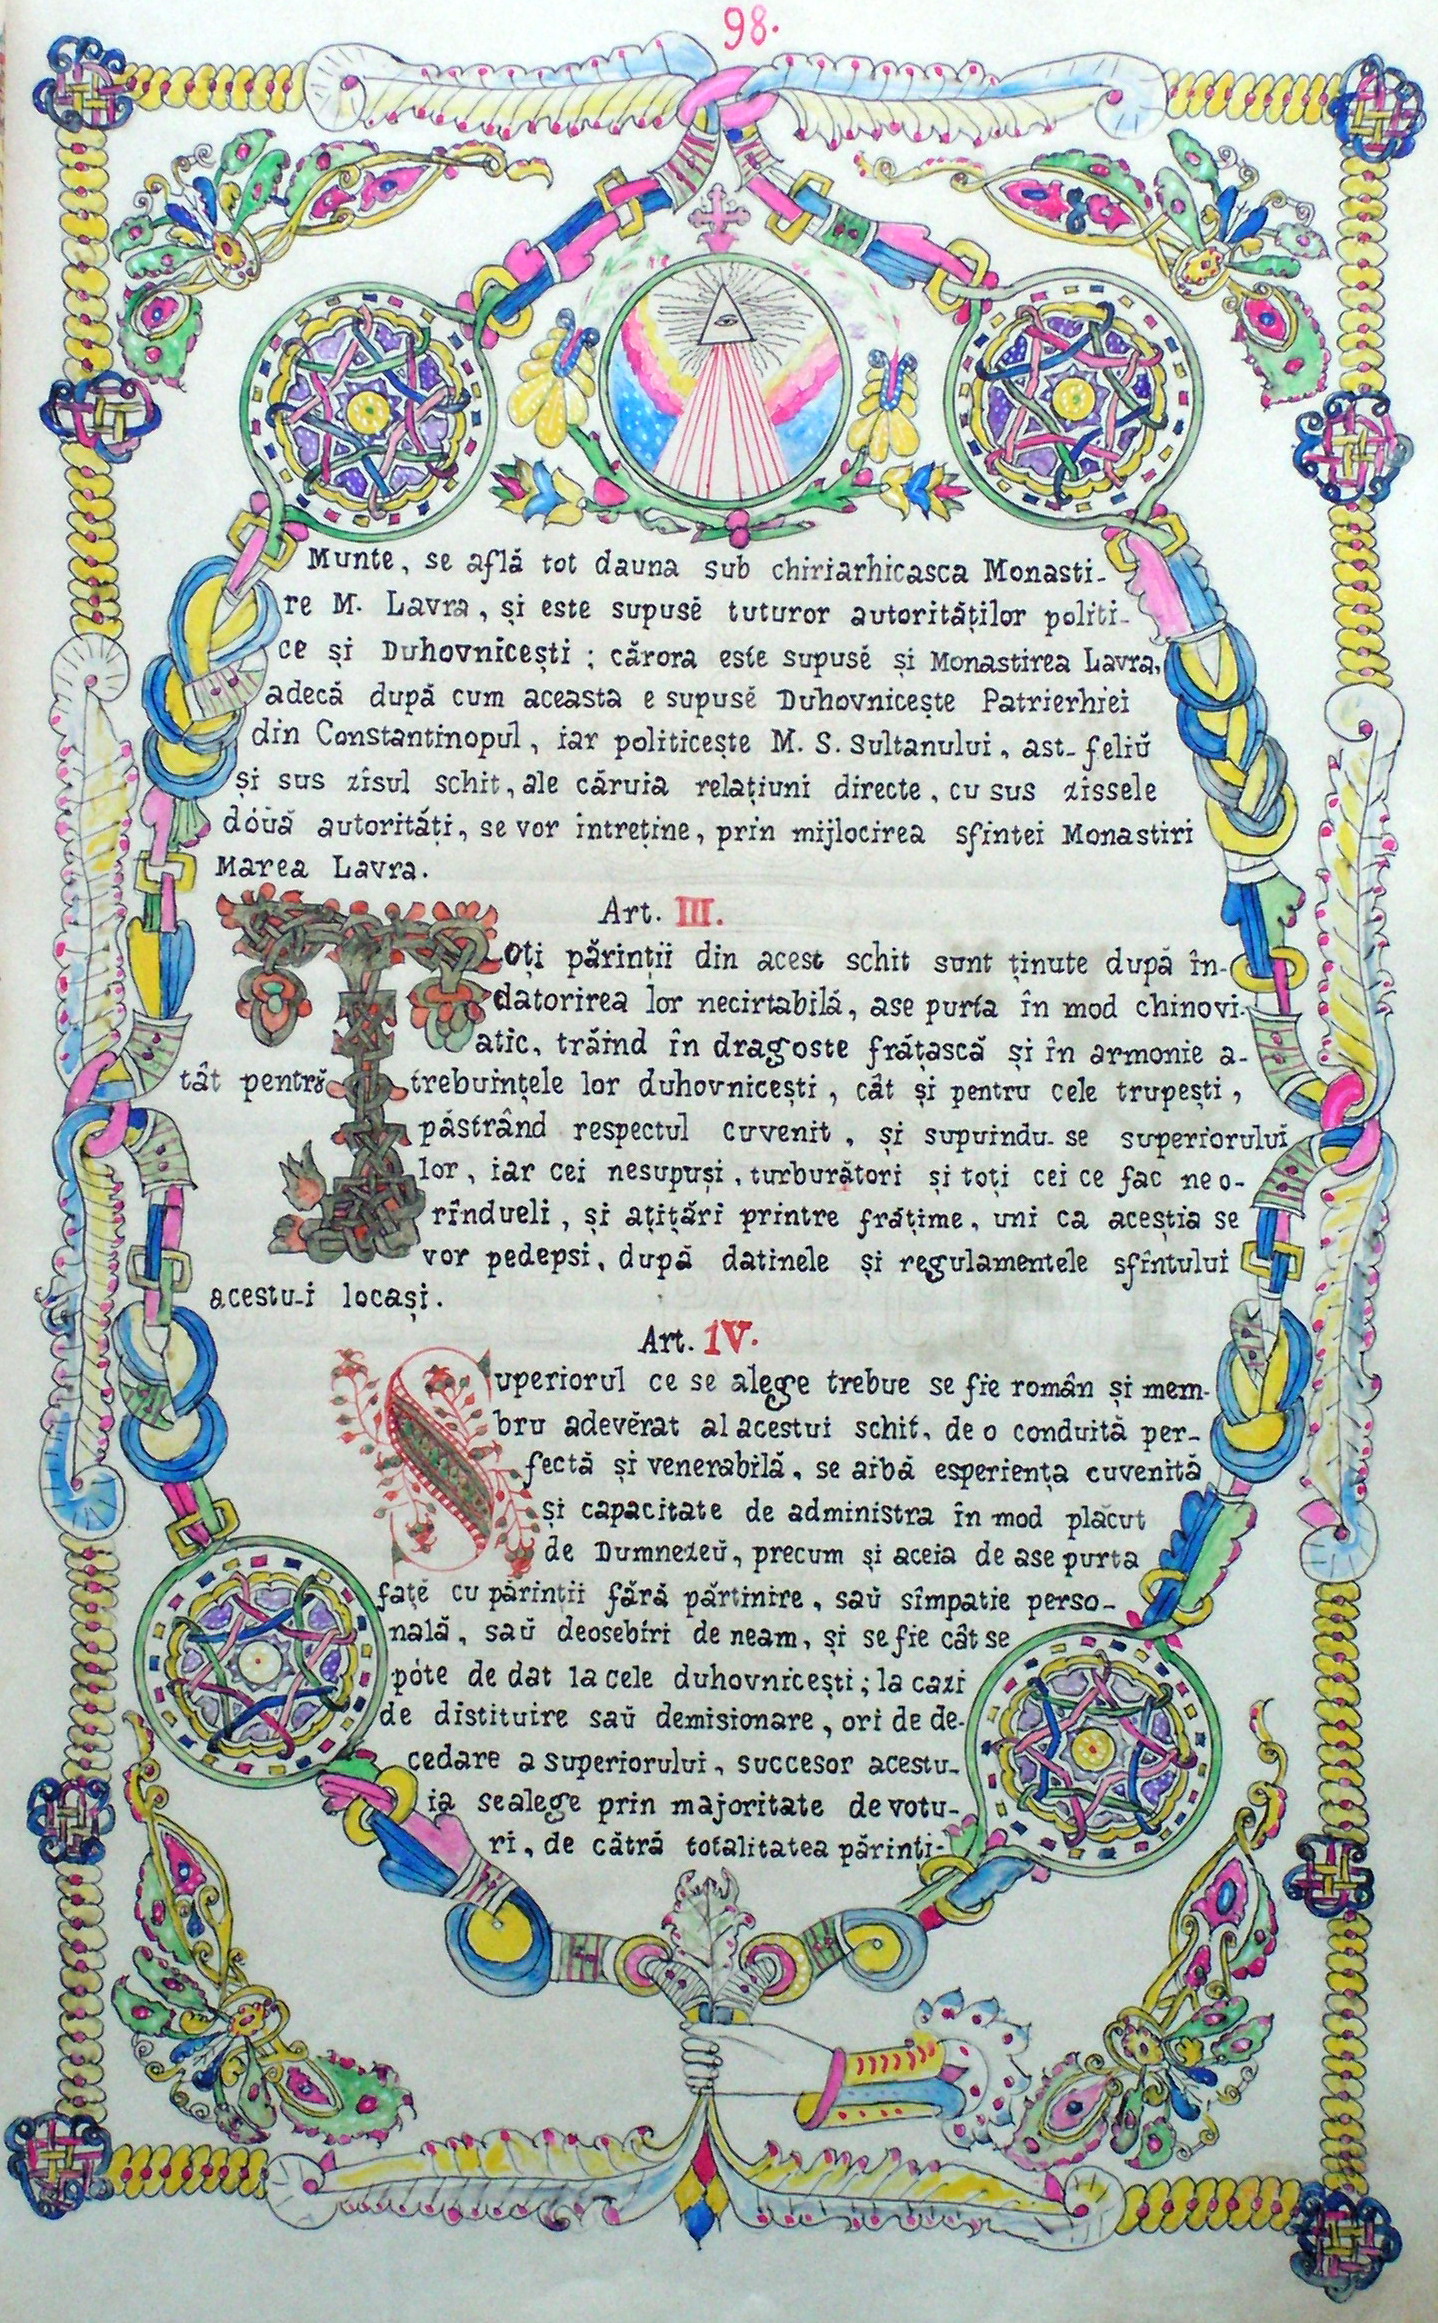 98.
Munte, se află tot dauna sub chiriarhicasca Monasti-
re M. Lavra, și este supusĕ tuturor autorităților politi-
ce și Duhovnicești; cărora este supusĕ și Monastirea Lavra,
adecă după cum aceasta e supusĕ Duhovnicește Patrierhiei
din Constantinopul, iar politicește M. S. Sultanului, ast-feliŭ
și sus zîsul schit, ale căruia relațiuni directe, cu sus zissele
dóuă autorități, se vor intreține, prin mijlocirea sfintei Monastiri
Marea Lavra.
Art. III.
Toți părinții din acest schit sunt ținute după în-
datorirea lor necirtabilă, ase purta în mod chinovi-
atic, trăind în dragoste frățască și în armonie a-
tât pentrŭ trebuințele lor duhovnicești, cât și pentru cele trupești,
păstrând respectul cuvenit, și supuindu-se superiorului
lor, iar cei nesupuși, turburători și toți cei ce fac neo-
rîndueli, și ațițări printre frățime, uni ca aceștia se
vor pedepsi, după datinele și regulamentele sfîntului
acestu-i locași.
Art. IV.
Superiorul ce se alege trebue se fie român și mem-
bru adevĕrat al acestui schit, de o conduită per-
fectă și venerabilă, se aibă esperiența cuvenită
și capacitate de administra în mod plăcut
de Dumnezeŭ, precum și aceia de ase purta
fațĕ cu părinții fără părtinire, saŭ sîmpatie perso-
nală, saŭ deosebiri de neam, și se fie cât se
póte de dat la cele duhovnicești; la cazi
de distituire saŭ demisionare, ori de de-
cedare a superiorului, succesor acestu-
ia sealege prin majoritate de votu-
ri, de cătră totalitatea părinți-